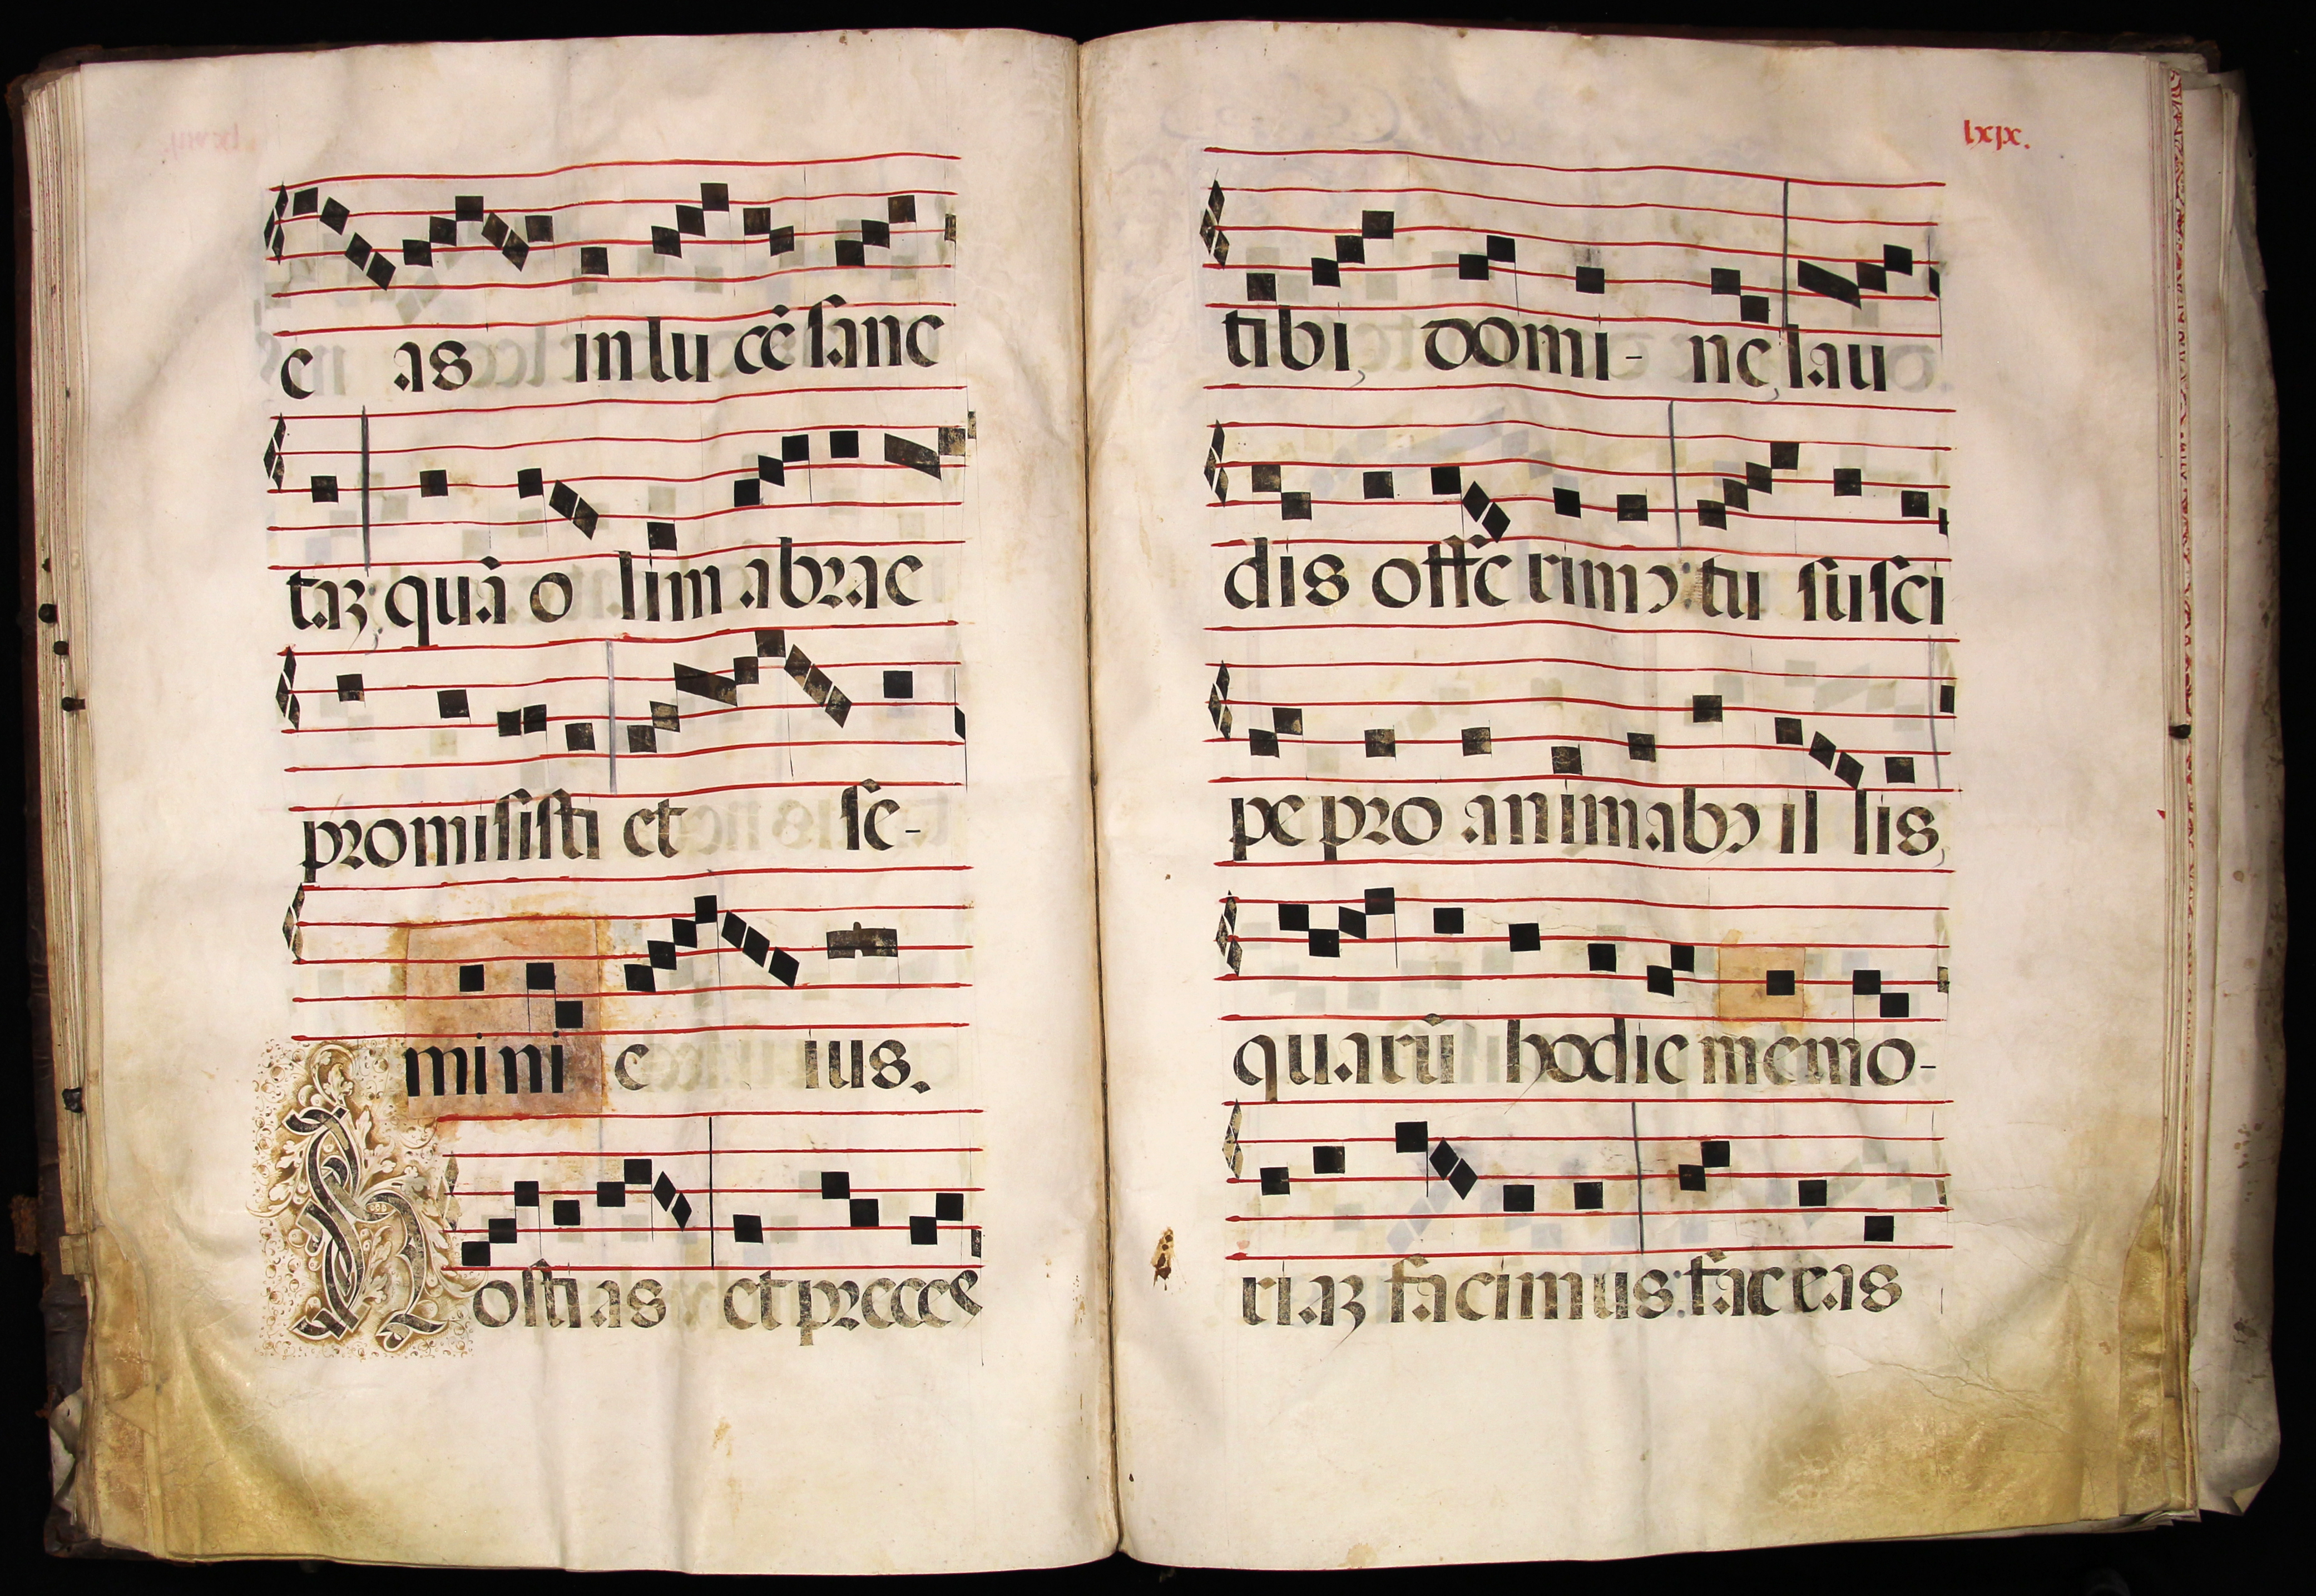 e as in lu cē sanc
taʒ, quā o lim abrae
promisisti et se-
mini e ius.
Hosti as et preces
lxix.
tibi, domi- ne, lau
dis offe rimꝰ: tu susci
pe pro animabꝰ il lis,
quarū hodie memo-
riaʒ facimus: fac eas